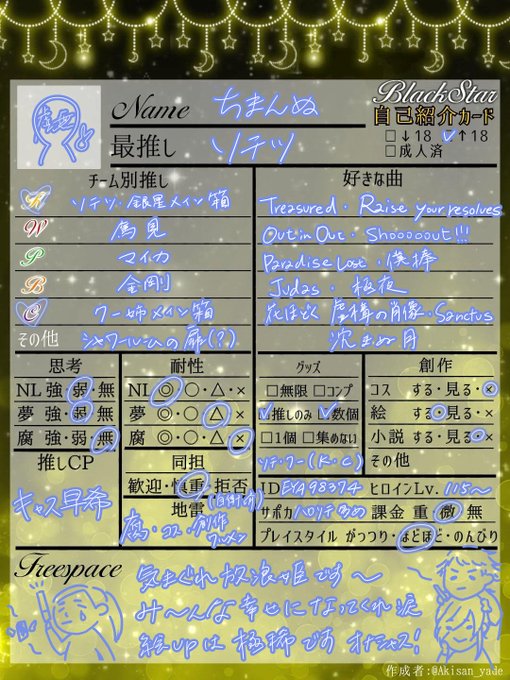 BlackStar
自己紹介カード
Name ちまんぬ
□↓18 ☑↑18
□成人済
最推し ソテツ
チーム別推し
K ソテツ・銀星メイン箱
W 鳥見
P マイカ
B 金剛
C クー姉メイン箱
その他 シャワールームの扉(?)
好きな曲
Treasured・Raise your resolves
Out in Out・Shooooout!!!
Paradise Lost・僕棒
Judas・極夜
花ほどく 虚構の肖像・Sanctus
沈まぬ月
思考
NL 強・弱・無
夢 強・弱・無
腐 強・弱・無
耐性
NL ◎・〇・△・×
夢 ◎・〇・△・×
腐 ◎・〇・△・×
グッズ
□無限 □コンプ
☑推しのみ ☑数個
□1個 □集めない
ソテ・クー(K・C)
創作
コス する・見る・×
絵 する・見る・×
小説 する・見る・×
その他
推しCP
キャス早希
同担
歓迎・慎重・拒否
地雷
腐・コス・創作
ID EYA98374 ヒロインLv. 115〜
サポカ ハロソテ多め 課金 重・微・無
プレイスタイル がっつり・ほどほど・のんびり
Freespace
気まぐれ放浪姫です〜
み〜んな幸せになってくれ涙
絵UPは極稀です オナシャス!
作成者:@Akisan_yade